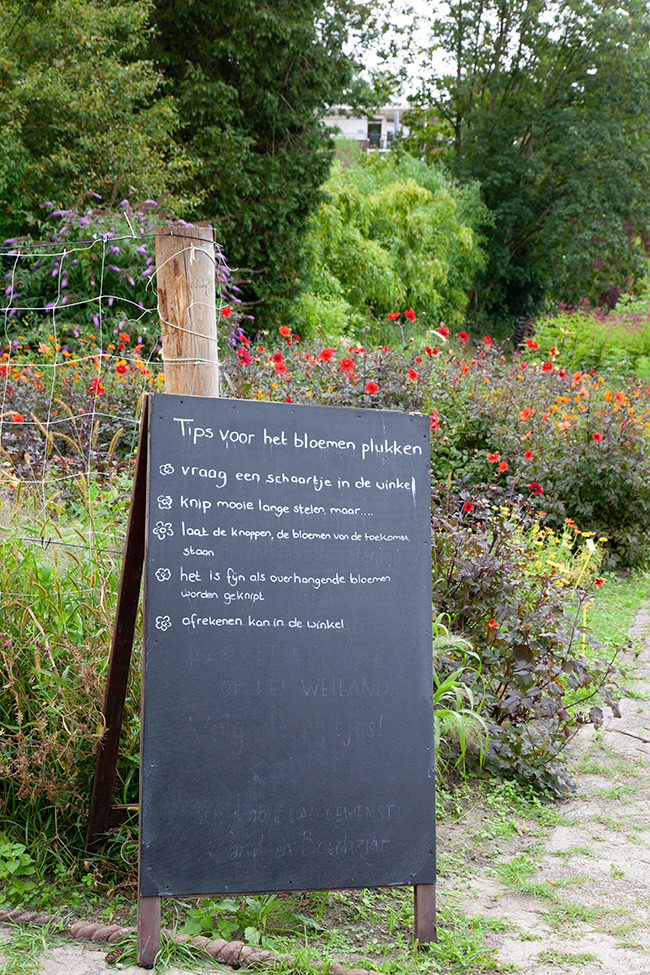 Tips voor het bloemen plukken
vraag een schaartje in de winkel
knip mooie lange stelen, maar....
laat de knoppen, de bloemen van de toekomst,
staan
het is fijn als overhangende bloemen
worden geknipt
afrekenen kan in de winkel
OP HET WEILAND
Volg de pijltjes!
EEN MOOIE DAG GEWENST!